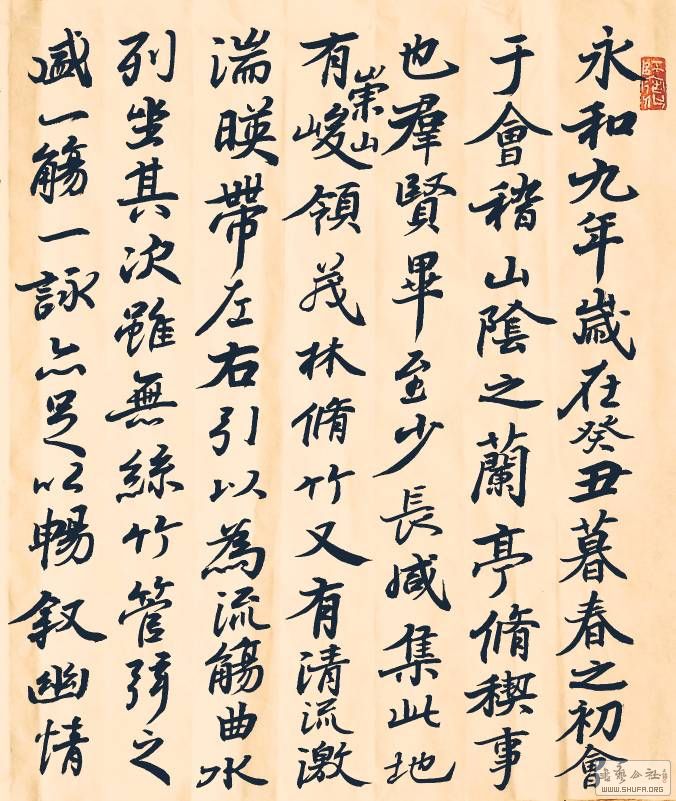 永和九年歲在癸丑暮春之初會
于會稽山陰之蘭亭脩稧事
也羣賢畢至少長咸集此地
有崇山峻領茂林脩竹又有清流激
湍暎帶左右引以為流觴曲水
列坐其次雖無絲竹管弦之
盛一觴一詠亦足以暢敘幽情
书艺公社
WWW.SHUFA.ORG